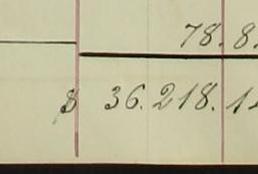 78.8
$ 36.218.1